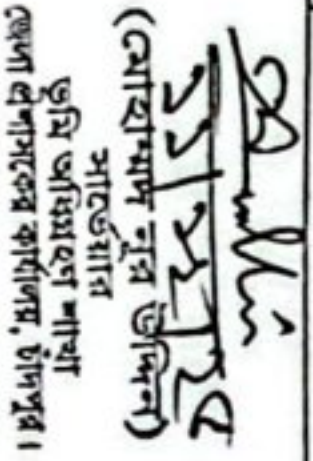 (মোহাম্মদ নুর উদ্দিন)
সার্ভেয়ার
ভূমি অধিগ্রহণ শাখা
জেলা প্রশাসকের কার্যালয়, চাঁদপুর।